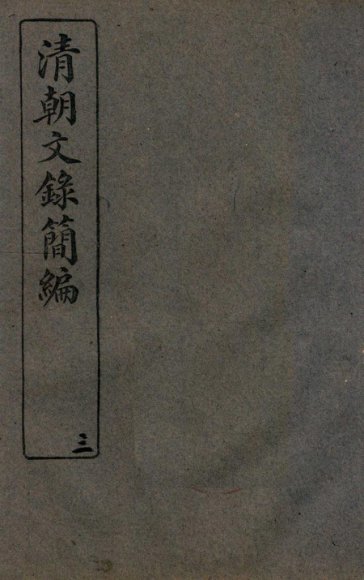 清朝文錄簡編
三